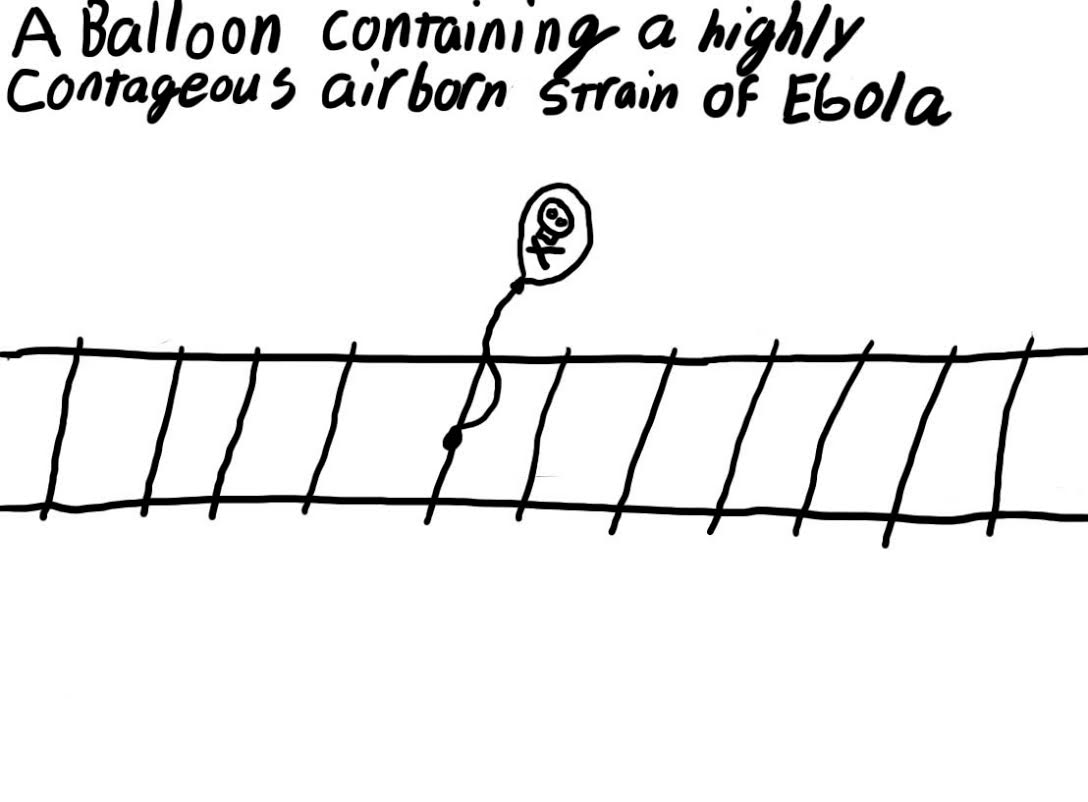 A Balloon containing a highly
Contageous airborn strain of Ebola